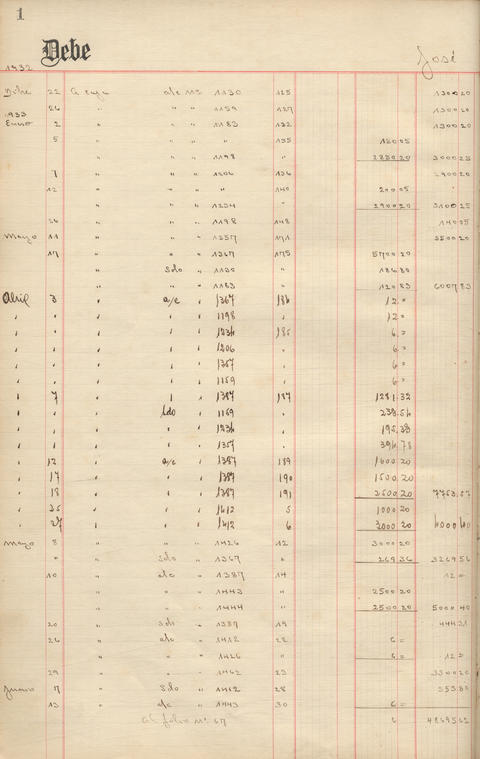 1
Debe
José
1932
Dcbe 22 A caja a/c nº 1130 125 1300 20
26 " " " 1159 127 1300 20
1933
Enero 2 " " " 1183 132 1300 20
5 " " " " 135 150 05
" " " 1198 " 2850 20 3000 25
7 " " " 1206 136 2900 20
12 " " " " 140 200 05
" " " 1234 " 2900 20 3100 25
26 " " " 1198 148 140 05
Marzo 11 " " " 1357 171 3500 20
17 " " " 1367 175 5700 20
" Sdo " 1130 " 186 80
" " " 1183 " 120 83 6007 83
Abril 3 " a/c " 1367 186 12 "
" " " " 1198 " 12 "
" " " " 1234 185 6 "
" " " " 1206 " 6 "
" " " " 1357 " 6 "
" " " " 1159 " 6 "
" 7 " " " 1387 187 1281 32
" " Sdo " 1159 " 238 56
" " " " 1234 " 195 38
" " " " 1357 " 396 78
" 12 " a/c " 1387 189 1600 20
" 17 " " " 1387 190 1500 20
" 18 " " " 1387 191 2500 20
" 25 " " " 1412 5 1000 20
" 27 " " " 1412 6 3000 20
Mayo 8 " " " 1426 12 3000 20
" " Sdo " 1367 " 269 36 3269 56
10 " a/c " 1387 14 12 =
" " " 1443 " 2500 20
" " " 1444 " 2500 20 5000 40
20 " Sdo " 1387 19 444 31
26 " a/c " 1412 22 6 =
" " " 1426 " 6 = 12 =
29 " " " 1462 23 3300 20
Junio 7 " Sdo " 1412 28 553 80
13 " a/c " 1443 30 6 =
Al folio nº 67